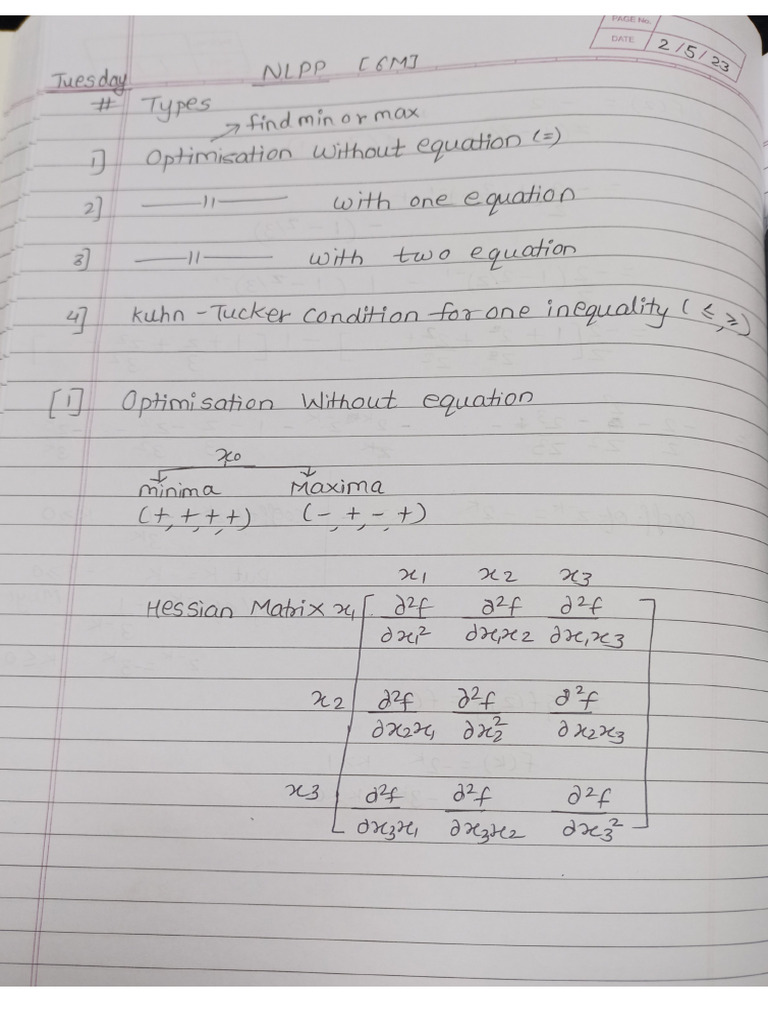 PAGE No.
DATE 2/5/23
Tuesday NLPP [6M]
# Types
→ find min or max
1] Optimisation Without equation (=)
2] —— 11 —— with one equation
3] —— 11 —— with two equation
4] Kuhn-Tucker Condition for one inequality (≤, ≥)
[1] Optimisation Without equation
x₀
minima Maxima
(+, +, +, +) (-, +, -, +)
x₁ x₂ x₃
Hessian Matrix x₁ [ ∂²f/∂x₁² ∂²f/∂x₁x₂ ∂²f/∂x₁x₃ ]
x₂ ∂²f/∂x₂x₁ ∂²f/∂x₂² ∂²f/∂x₂x₃
x₃ ∂²f/∂x₃x₁ ∂²f/∂x₃x₂ ∂²f/∂x₃²